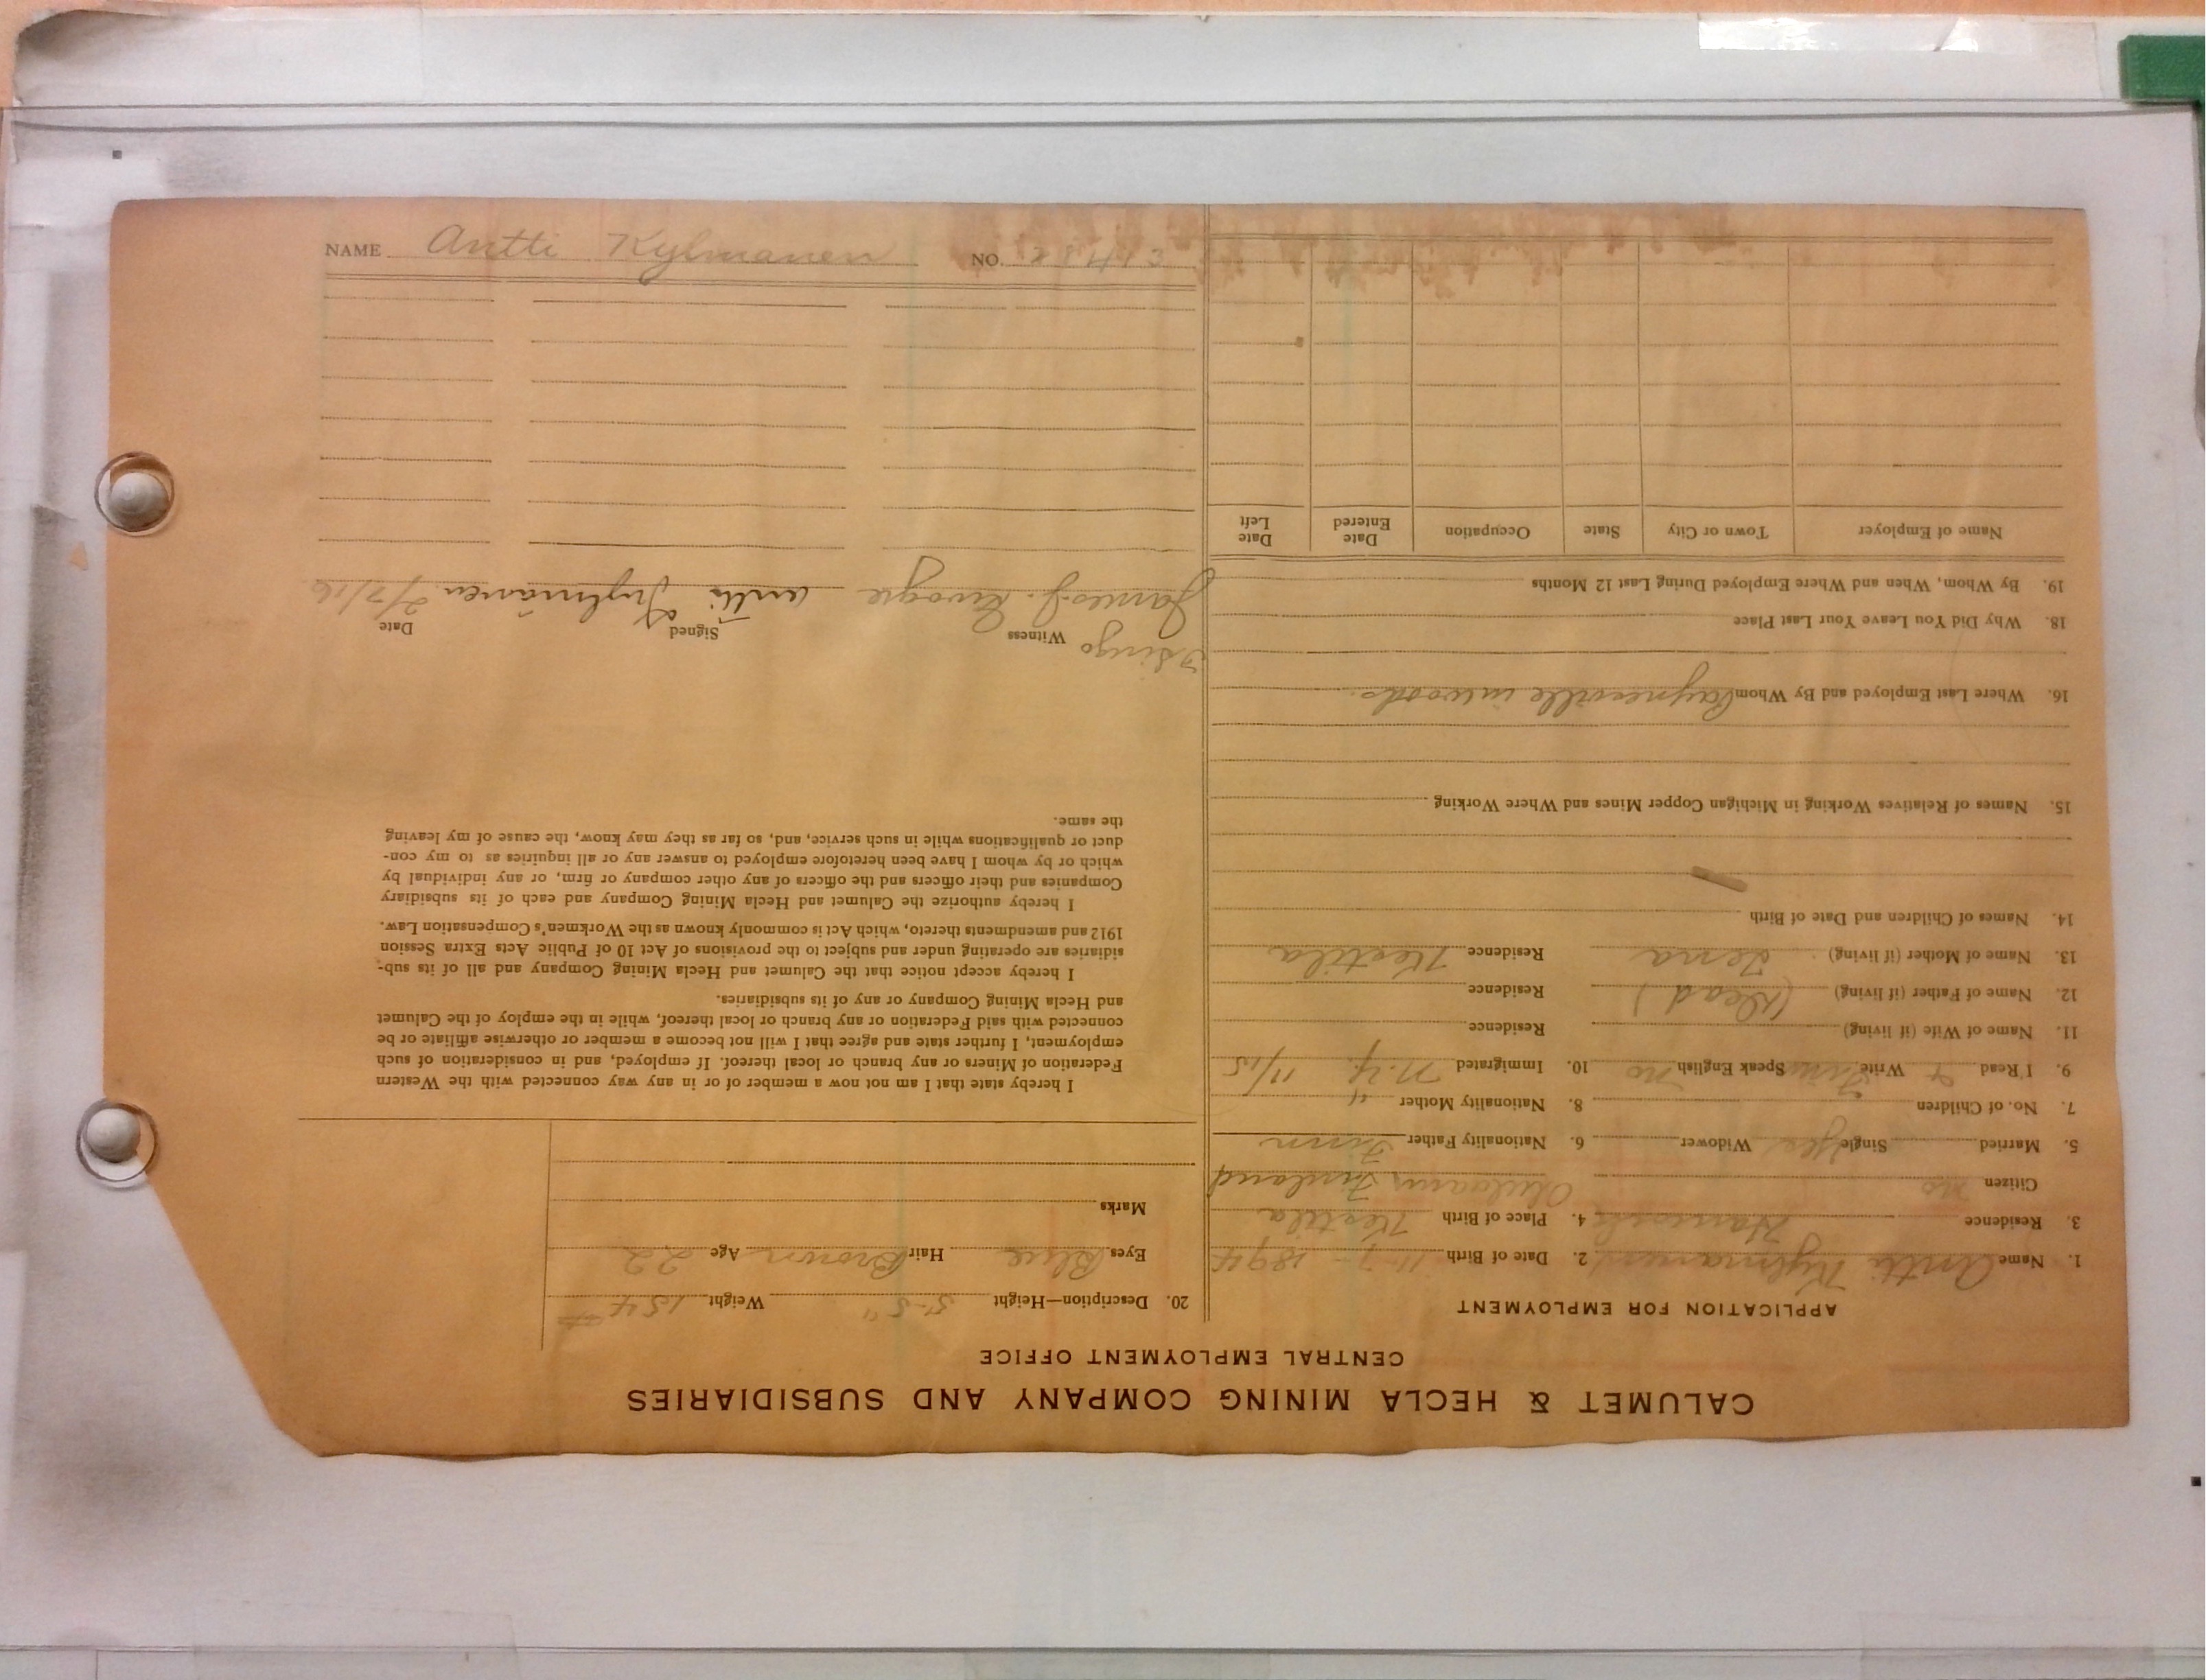 CALUMET & HECLA MINING COMPANY AND SUBSIDIARIES
CENTRAL EMPLOYMENT OFFICE
APPLICATION FOR EMPLOYMENT
1. Name Antti Kylmanen 2. Date of Birth 11-7-1894
3. Residence 4. Place of Birth Kestila
Citizen no Finland
5. Married Single Yes Widower 6. Nationality Father Finn
7. No. of Children 8. Nationality Mother "
9. I Read & Write Finn Speak English no 10. Immigrated N.Y. 11/15
11. Name of Wife (if living) Residence
12. Name of Father (if living) (Dead) Residence
13. Name of Mother (if living) Lena Residence Kestila
14. Names of Children and Date of Birth
15. Names of Relatives Working in Michigan Copper Mines and Where Working
16. Where Last Employed and By Whom Paynesville in woods.
18. Why Did You Leave Your Last Place
19. By Whom, When and Where Employed During Last 12 Months
Name of Employer Town or City State Occupation Date Entered Date Left
20. Description—Height 5'-5" Weight 154 #
Eyes Blue Hair Brown Age 22
Marks
I hereby state that I am not now a member of or in any way connected with the Western
Federation of Miners or any branch or local thereof. If employed, and in consideration of such
employment, I further state and agree that I will not become a member or otherwise affiliate or be
connected with said Federation or any branch or local thereof, while in the employ of the Calumet
and Hecla Mining Company or any of its subsidiaries.
I hereby accept notice that the Calumet and Hecla Mining Company and all of its sub-
sidiaries are operating under and subject to the provisions of Act 10 of Public Acts Extra Session
1912 and amendments thereto, which Act is commonly known as the Workmen's Compensation Law.
I hereby authorize the Calumet and Hecla Mining Company and each of its subsidiary
Companies and their officers and the officers of any other company or firm, or any individual by
which or by whom I have been heretofore employed to answer any or all inquiries as to my con-
duct or qualifications while in such service, and, so far as they may know, the cause of my leaving
the same.
Witness Signed Date
James J. Antti Kylmänen 2/2/16
NAME Antti Kylmanen NO. 28413